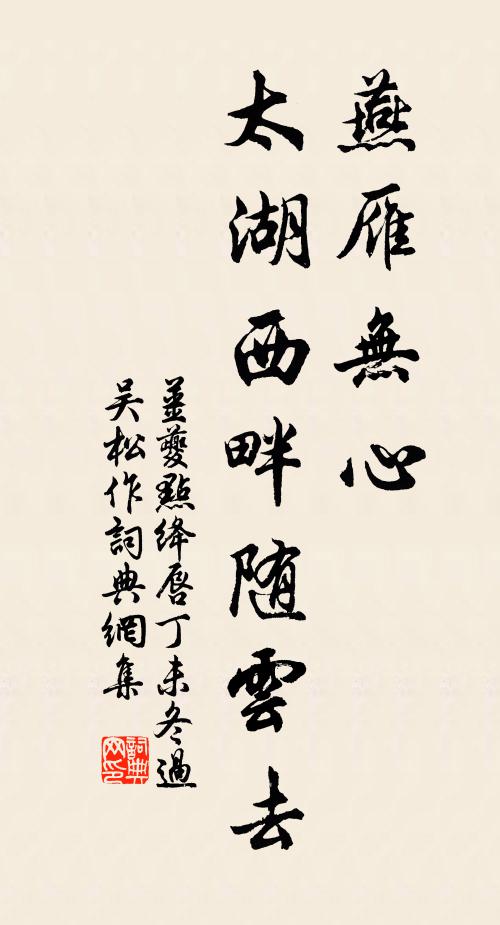 燕雁無心
太湖西畔随雲去
姜夔點绛唇丁未冬過
吴松作詞典網集
詞典网印